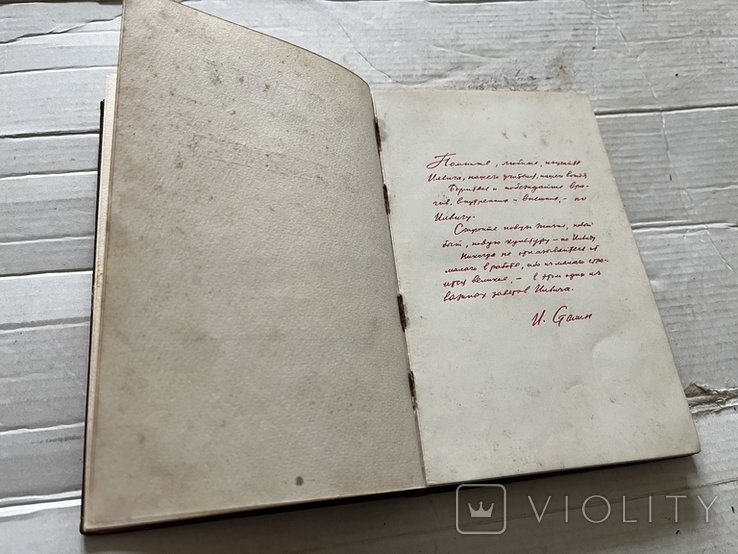 Помните, любите, изучайте
Ильича, нашего учителя, нашего вождя
Боритесь и побеждайте вра-
гов, внутренних и внешних, – по
Ильичу.
Стройте новую жизнь, новый
быт, новую культуру – по Ильичу
Никогда не отказывайтесь от
малого в работе, ибо из малого стро-
ится великое, – в этом один из
важных заветов Ильича.
И. Сталин
VIOLITY